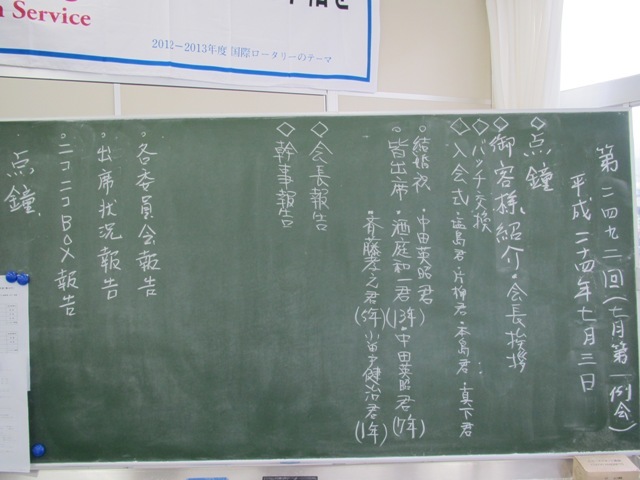 n Service
2012−2013年度 国際ロータリーのテーマ
第二四九二回(七月第一例会)
平成二十四年七月三日
◇点鐘
◇御客様紹介・会長挨拶
◇バッチ交換
◇入会式・遠島君・片柳君・本島君・真下君
◦結婚祝・中田英昭君
◦皆出席・酒庭和一君(13年)・中田英昭君(7年)
・斉藤孝之君(5年)小富士健治君(1年)
◇会長報告
◇幹事報告
◦各委員会報告
◦出席状況報告
◦ニコニコBOX報告
点鐘